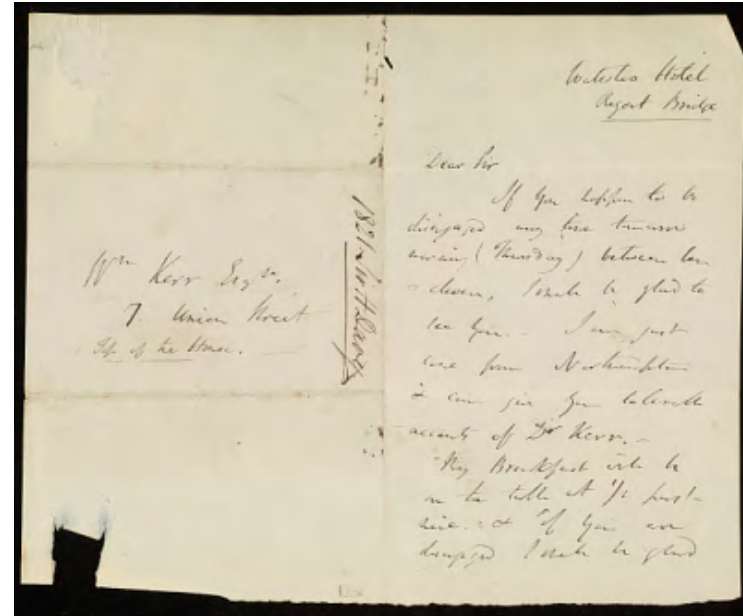 Wm Kerr Esqr.
7. Union Street
Top of the House.
1821. Sir H Davy
Waterloo Hotel
Regent Bridge
Dear Sir
If you happen to be
disengaged any time tomorrow
morning (Thursday) between ten
& eleven, I shall be glad to
see you. - I am just
come from Northampton
& can give you tolerable
accounts of Dr Kerr. -
My Breakfast will be
on the table at 1/2 past
nine. & if you are
disengaged I shall be glad